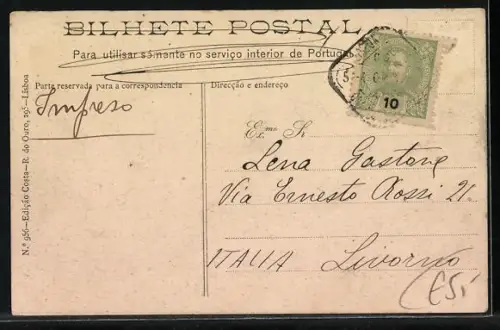 BILHETE POSTAL
Para utilisar sómente no serviço interior de Portugal
Parte reservada para a correspondencia
Direcção e endereço
Impreso
10
Exmo Sr
Lena Gastone
Via Ernesto Rossi 21
ITALIA Livorno
N.º 956—Edição Costa—R. do Ouro, 295—Lisboa